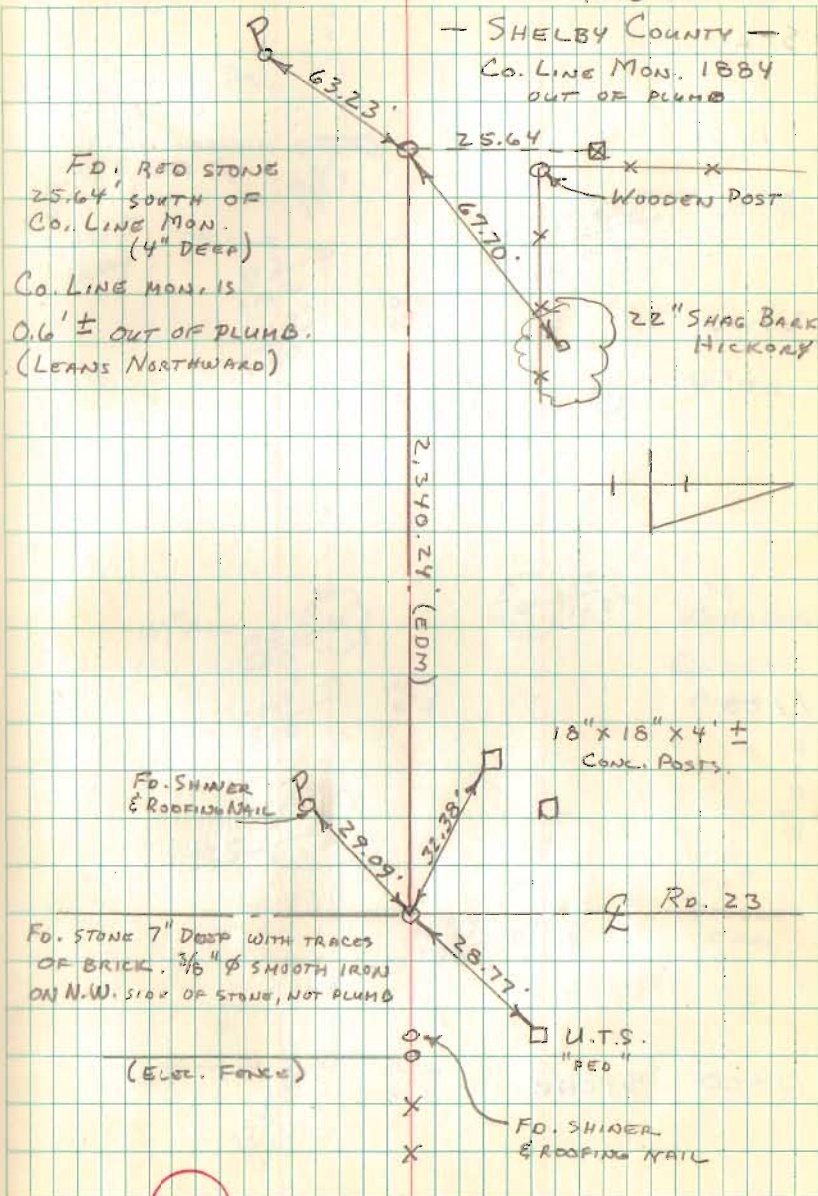 - SHELBY COUNTY -
CO. LINE MON. 1884
OUT OF PLUMB
63.23'
25.64
WOODEN POST
FD. RED STONE
25.64' SOUTH OF
CO. LINE MON.
(4" DEEP)
67.70'
CO. LINE MON. IS
0.6' ± OUT OF PLUMB.
(LEANS NORTHWARD)
22" SHAG BARK
HICKORY
2,340.24' (EDM)
18" x 18" x 4' ±
CONC. POSTS.
FD. SHINER
& ROOFING NAIL
29.09'
32.38'
℄ RD. 23
FD. STONE 7" DEEP WITH TRACES
OF BRICK. 3/8" ⌀ SMOOTH IRON
ON N.W. SIDE OF STONE, NOT PLUMB
28.77'
U.T.S.
"PED"
(ELEC. FENCE)
FD. SHINER
& ROOFING NAIL